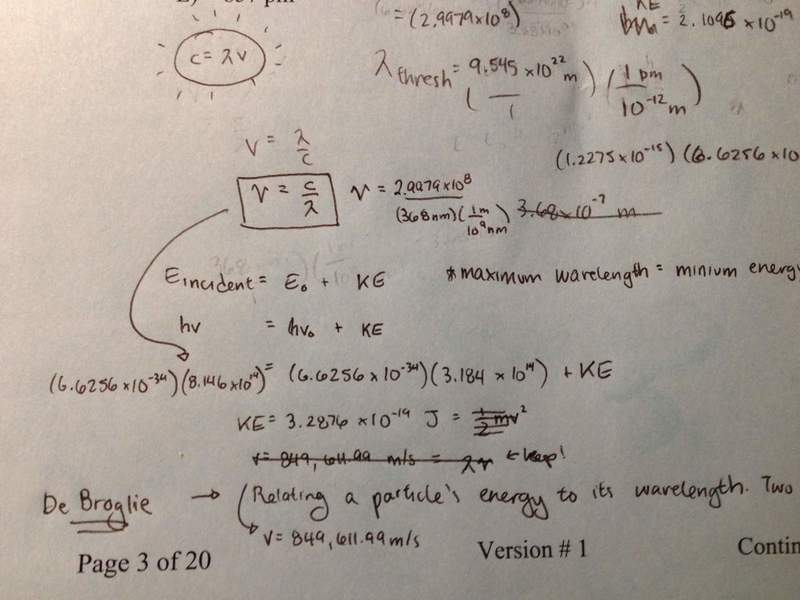 = (2.9979×10⁸)
KE
= 2.1095 × 10⁻¹⁹
c = λν
λthresh = 9.545 ×10²² m ) ( 1 pm / 10⁻¹² m )
( — / 1
ν = λ/c
(1.2275×10⁻¹⁵) (6.6256×10
ν = c/λ
ν = 2.9979×10⁸ / (368nm)(1m / 10⁹nm) 3.68×10⁻⁷ m
Eincident = E₀ + KE
*maximum wavelength = minium energy
hν = hν₀ + KE
(6.6256×10⁻³⁴)(8.146×10¹⁴) = (6.6256×10⁻³⁴)(3.184 × 10¹⁴) + KE
KE = 3.2876 ×10⁻¹⁹ J = ½mv²
v = 849,611.99 m/s = ← keep!
De Broglie → (Relating a particle's energy to its wavelength. Two
↳ v = 849,611.99 m/s
Page 3 of 20
Version # 1
Contin